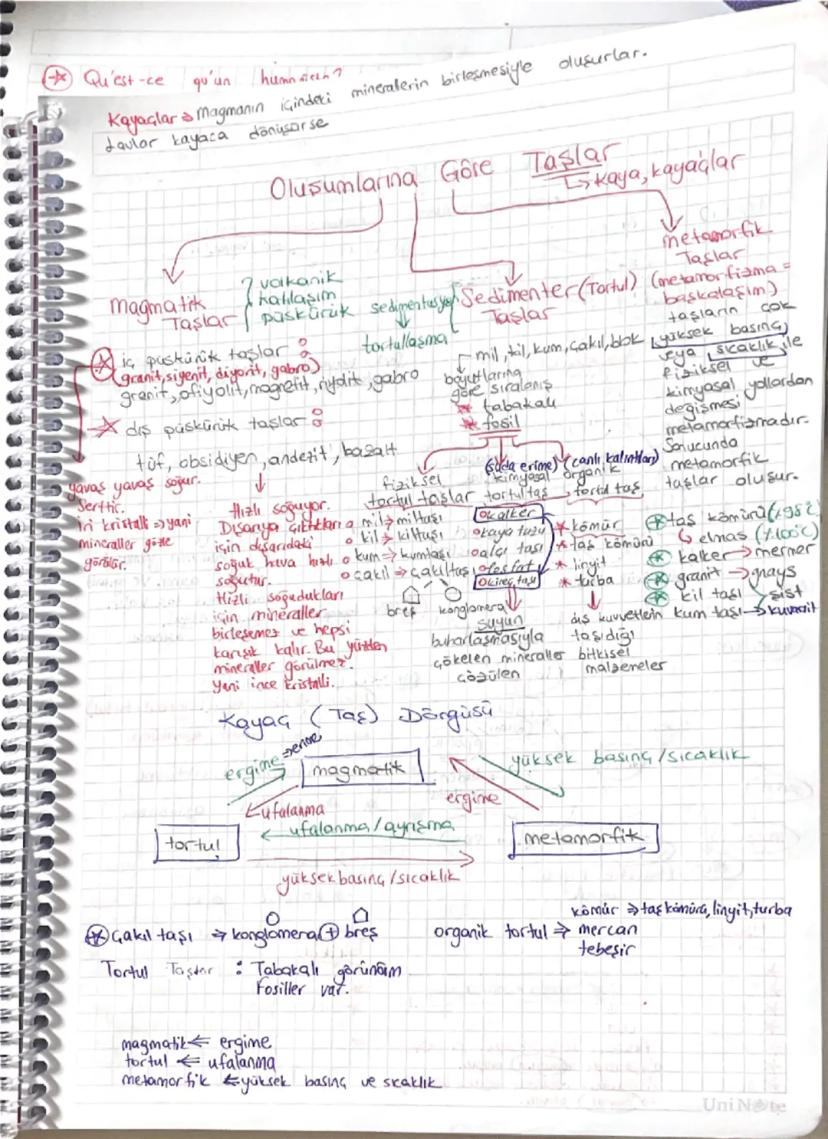 Qu'est-ce qu'un
Kayaçlar → magmanın içindeki minerallerin birleşmesiyle oluşurlar.
Lavlar kayaca dönüşürse
Oluşumlarına Göre Taşlar
↳ kaya, kayaçlar
magmatik Taşlar
volkanik
katılaşım
püskürük
iç püskürük taşlar :
(granit, siyenit, diyorit, gabro)
granit, ofiyolit, magnetit, riyolit, gabro
dış püskürük taşlar :
tüf, obsidiyen, andezit, bazalt
yavaş yavaş soğur.
Serttir.
İri kristalli ⇒ yani
mineraller gözle
görülür.
Hızlı soğuyor.
Dışarıya çıktıkları
için dışarıdaki
soğuk hava hızlı
soğutur.
Hızlı soğudukları
için mineraller
birleşemez ve hepsi
karışık kalır. Bu yüzden
mineraller görülmez.
Yani ince kristalli.
sedimentasyon
tortullaşma
Sedimenter (Tortul)
Taşlar
mil, kil, kum, çakıl, blok
boyutlarına
göre sıralanış
* tabakalı
* fosil
fiziksel
tortul taşlar
mil → miltaşı
kil → kiltaşı
kum → kumtaşı
çakıl → çakıltaşı
breş konglomera
(suda erime)
kimyasal
tortul taş
kalker
kaya tuzu
alçı taşı
fosfat
kireç taşı
suyun
buharlaşmasıyla
çökelen mineraller
çözülen
(canlı kalıntıları)
organik
tortul taş
* kömür
* taş kömürü
* linyit
* turba
dış kuvvetlerin
taşıdığı
bitkisel
malzemeler
metamorfik
Taşlar
(metamorfizma =
başkalaşım)
taşların çok
yüksek basınç
veya sıcaklık ile
fiziksel ve
kimyasal yollardan
değişmesi
metamorfizmadır.
Sonucunda
metamorfik
taşlar oluşur.
taş kömürü
↳ elmas
kalker → mermer
granit → gnays
kil taşı → şist
kum taşı → kuvarsit
Kayaç (Taş) Döngüsü
ergime → erime
magmatik
yüksek basınç / sıcaklık
ufalanma
ergime
ufalanma / ayrışma
tortul
metamorfik
yüksek basınç / sıcaklık
çakıl taşı → konglomera + breş
organik tortul ⇒ kömür ⇒ taş kömürü, linyit, turba
mercan
tebeşir
Tortul Taşlar : Tabakalı görünüm
Fosiller var.
magmatik ⇐ ergime
tortul ⇐ ufalanma
metamorfik ⇐ yüksek basınç ve sıcaklık
UniNote